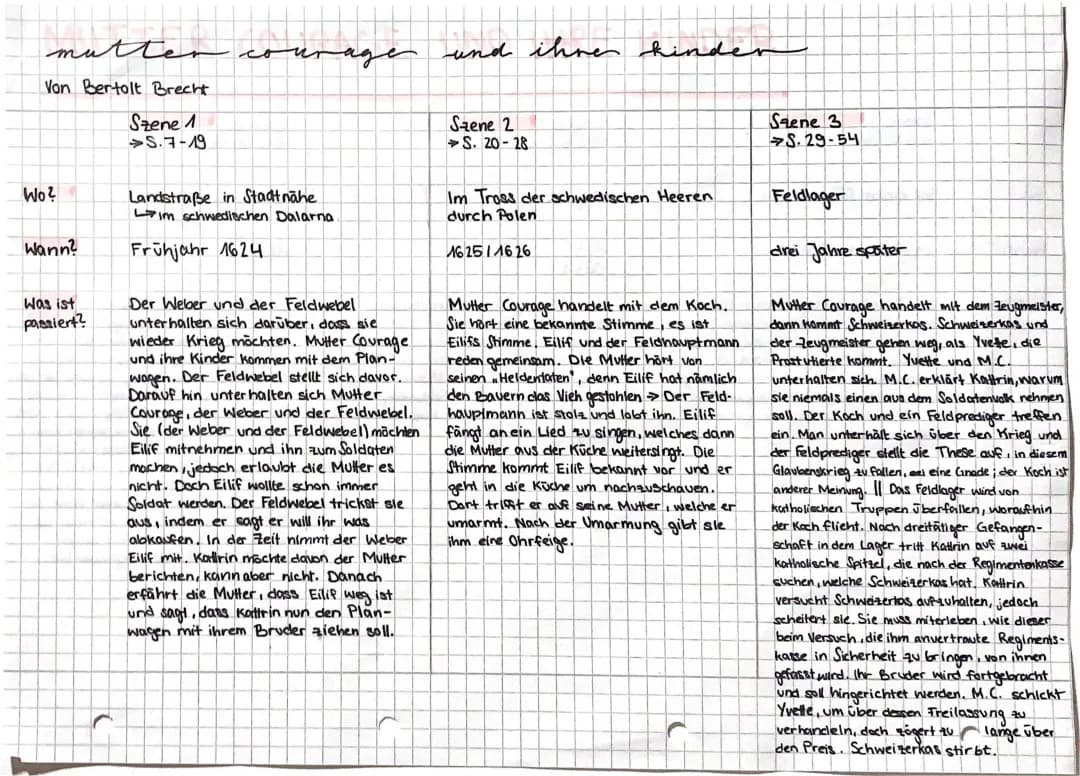 mutter courage und ihre kinder
Von Bertolt Brecht
Szene 1
→ S. 7-19
Szene 2
→ S. 20-28
Szene 3
→ S. 29-54
Wo?
Landstraße in Stadtnähe
↳ im schwedischen Dalarna
Im Tross der schwedischen Heeren
durch Polen
Feldlager
Wann?
Frühjahr 1624
1625/1626
drei Jahre später
Was ist
passiert?
Der Weber und der Feldwebel
unterhalten sich darüber, dass sie
wieder Krieg möchten. Mutter Courage
und ihre Kinder kommen mit dem Plan-
wagen. Der Feldwebel stellt sich davor.
Darauf hin unterhalten sich Mutter
Courage, der Weber und der Feldwebel.
Sie (der Weber und der Feldwebel) möchten
Eilif mitnehmen und ihn zum Soldaten
machen, jedoch erlaubt die Mutter es
nicht. Doch Eilif wollte schon immer
Soldat werden. Der Feldwebel trickst sie
aus, indem er sagt er will ihr was
abkaufen. In der Zeit nimmt der Weber
Eilif mit. Kattrin möchte davon der Mutter
berichten, kann aber nicht. Danach
erfährt die Mutter, dass Eilif weg ist
und sagt, dass Kattrin nun den Plan-
wagen mit ihrem Bruder ziehen soll.
Mutter Courage handelt mit dem Koch.
Sie hört eine bekannte Stimme, es ist
Eilifs Stimme. Eilif und der Feldhauptmann
reden gemeinsam. Die Mutter hört von
seinen „Heldentaten", denn Eilif hat nämlich
den Bauern das Vieh gestohlen → Der Feld-
hauptmann ist stolz und lobt ihn. Eilif
fängt an ein Lied zu singen, welches dann
die Mutter aus der Küche weitersingt. Die
Stimme kommt Eilif bekannt vor und er
geht in die Küche um nachzuschauen.
Dort trifft er auf seine Mutter, welche er
umarmt. Nach der Umarmung gibt sie
ihm eine Ohrfeige.
Mutter Courage handelt mit dem Zeugmeister,
dann kommt Schweizerkas. Schweizerkas und
der Zeugmeister gehen weg, als Yvette, die
Prostutierte kommt. Yvette und M.C.
unterhalten sich. M.C. erklärt Kattrin, warum
sie niemals einen aus dem Soldatenvolk nehmen
soll. Der Koch und ein Feldprediger treffen
ein. Man unterhält sich über den Krieg und
der Feldprediger stellt die These auf, in diesem
Glaubenskrieg zu fallen, sei eine Gnade; der Koch ist
anderer Meinung. || Das Feldlager wird von
katholischen Truppen überfallen, woraufhin
der Koch flieht. Nach dreitätiger Gefangen-
schaft in dem Lager tritt Kattrin auf zwei
katholische Spitzel, die nach der Regimentenkasse
suchen, welche Schweizerkas hat. Kattrin
versucht Schweizerkas aufzuhalten, jedoch
scheitert sie. Sie muss miterleben, wie dieser
beim Versuch, die ihm anvertraute Regiments-
kasse in Sicherheit zu bringen, von ihnen
gefasst wird. Ihr Bruder wird fortgebracht
und soll hingerichtet werden. M.C. schickt
Yvette, um über dessen Freilassung zu
verhandeln, doch zögert zu lange über
den Preis. Schweizerkas stirbt.